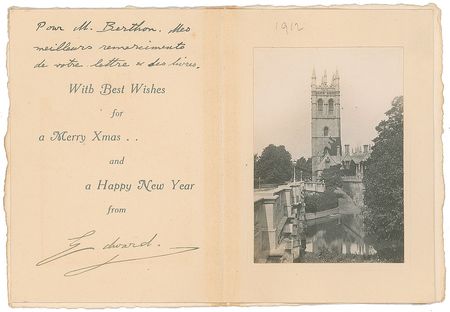 Pour M. Berthon. Mes
meilleurs remerciments
de votre lettre et des livres.
With Best Wishes
for
a Merry Xmas . .
and
a Happy New Year
from
Edward.
1912